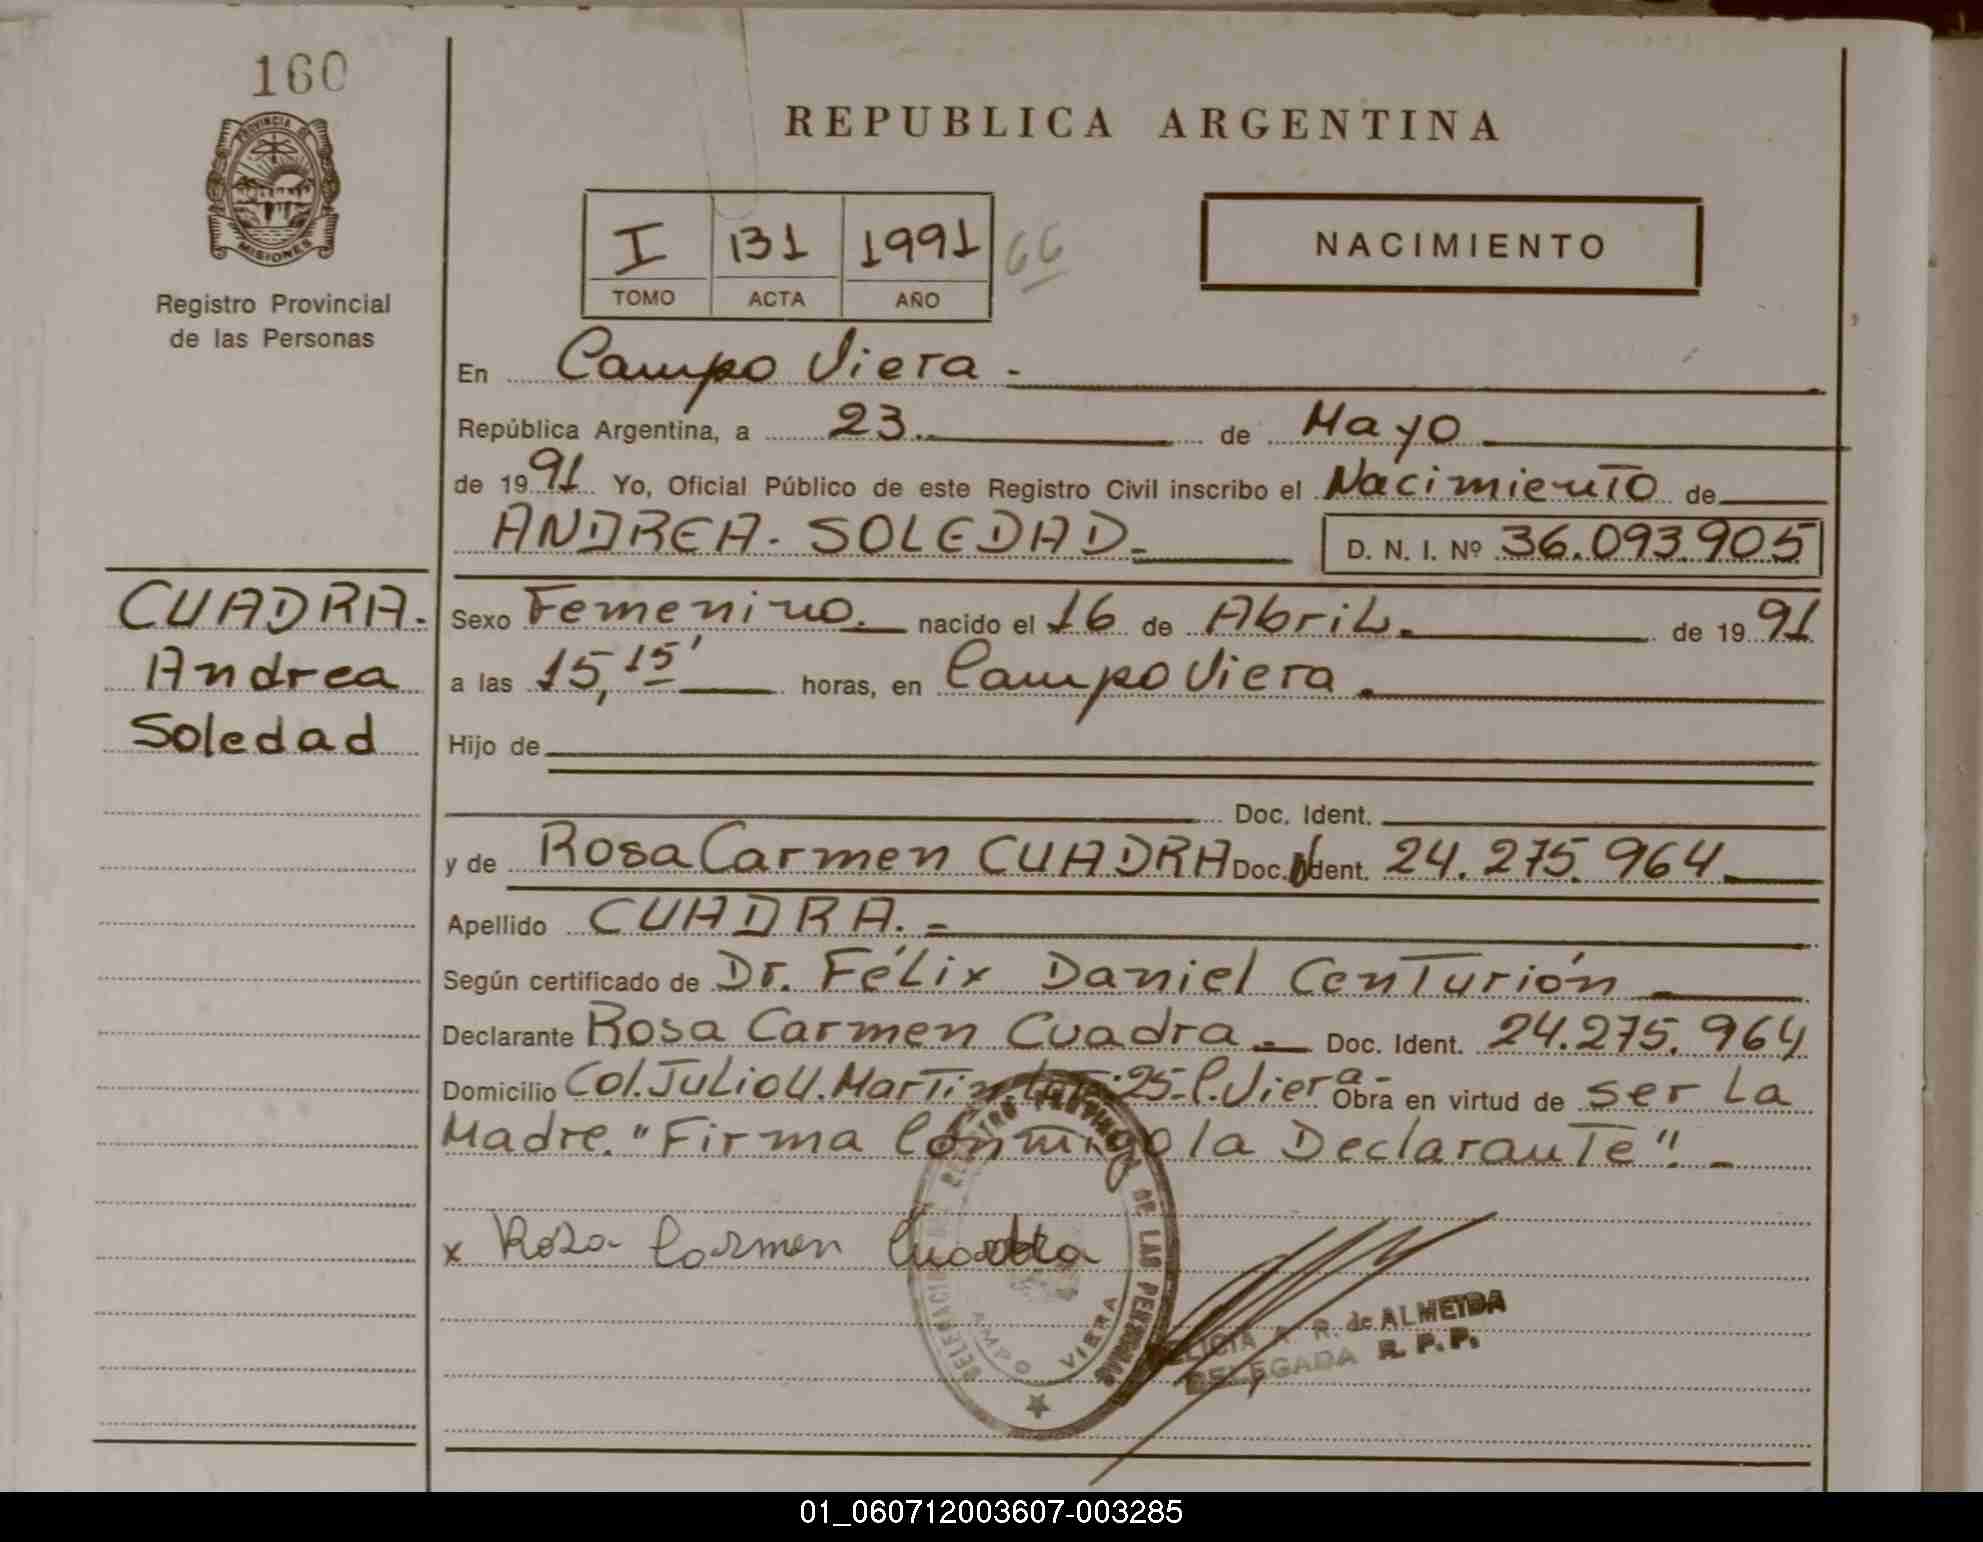 160
PROVINCIA DE
MISIONES
Registro Provincial
de las Personas
CUADRA.
Andrea
Soledad
REPUBLICA ARGENTINA
I 131 1991 66
TOMO ACTA AÑO
NACIMIENTO
En Campo Viera.
República Argentina, a 23. de Mayo
de 1991 Yo, Oficial Público de este Registro Civil inscribo el Nacimiento de
ANDREA. SOLEDAD. D. N. I. Nº 36.093.905
Sexo Femenino. nacido el 16 de Abril. de 1991
a las 15,15' horas, en Campo Viera.
Hijo de
Doc. Ident.
y de Rosa Carmen CUADRA Doc. Ident. 24.275.964
Apellido CUADRA.-
Según certificado de Dr. Félix Daniel Centurión
Declarante Rosa Carmen Cuadra.- Doc. Ident. 24.275.964
Domicilio Col. Julio U. Martin 25-C. Viera- Obra en virtud de ser La
Madre. "Firma Conmigo la Declarante".-
x Rosa Carmen Cuadra
DE LAS PERSONAS
VIERA
R. de ALMEIDA
DELEGADA R. P. P.
01_060712003607-003285